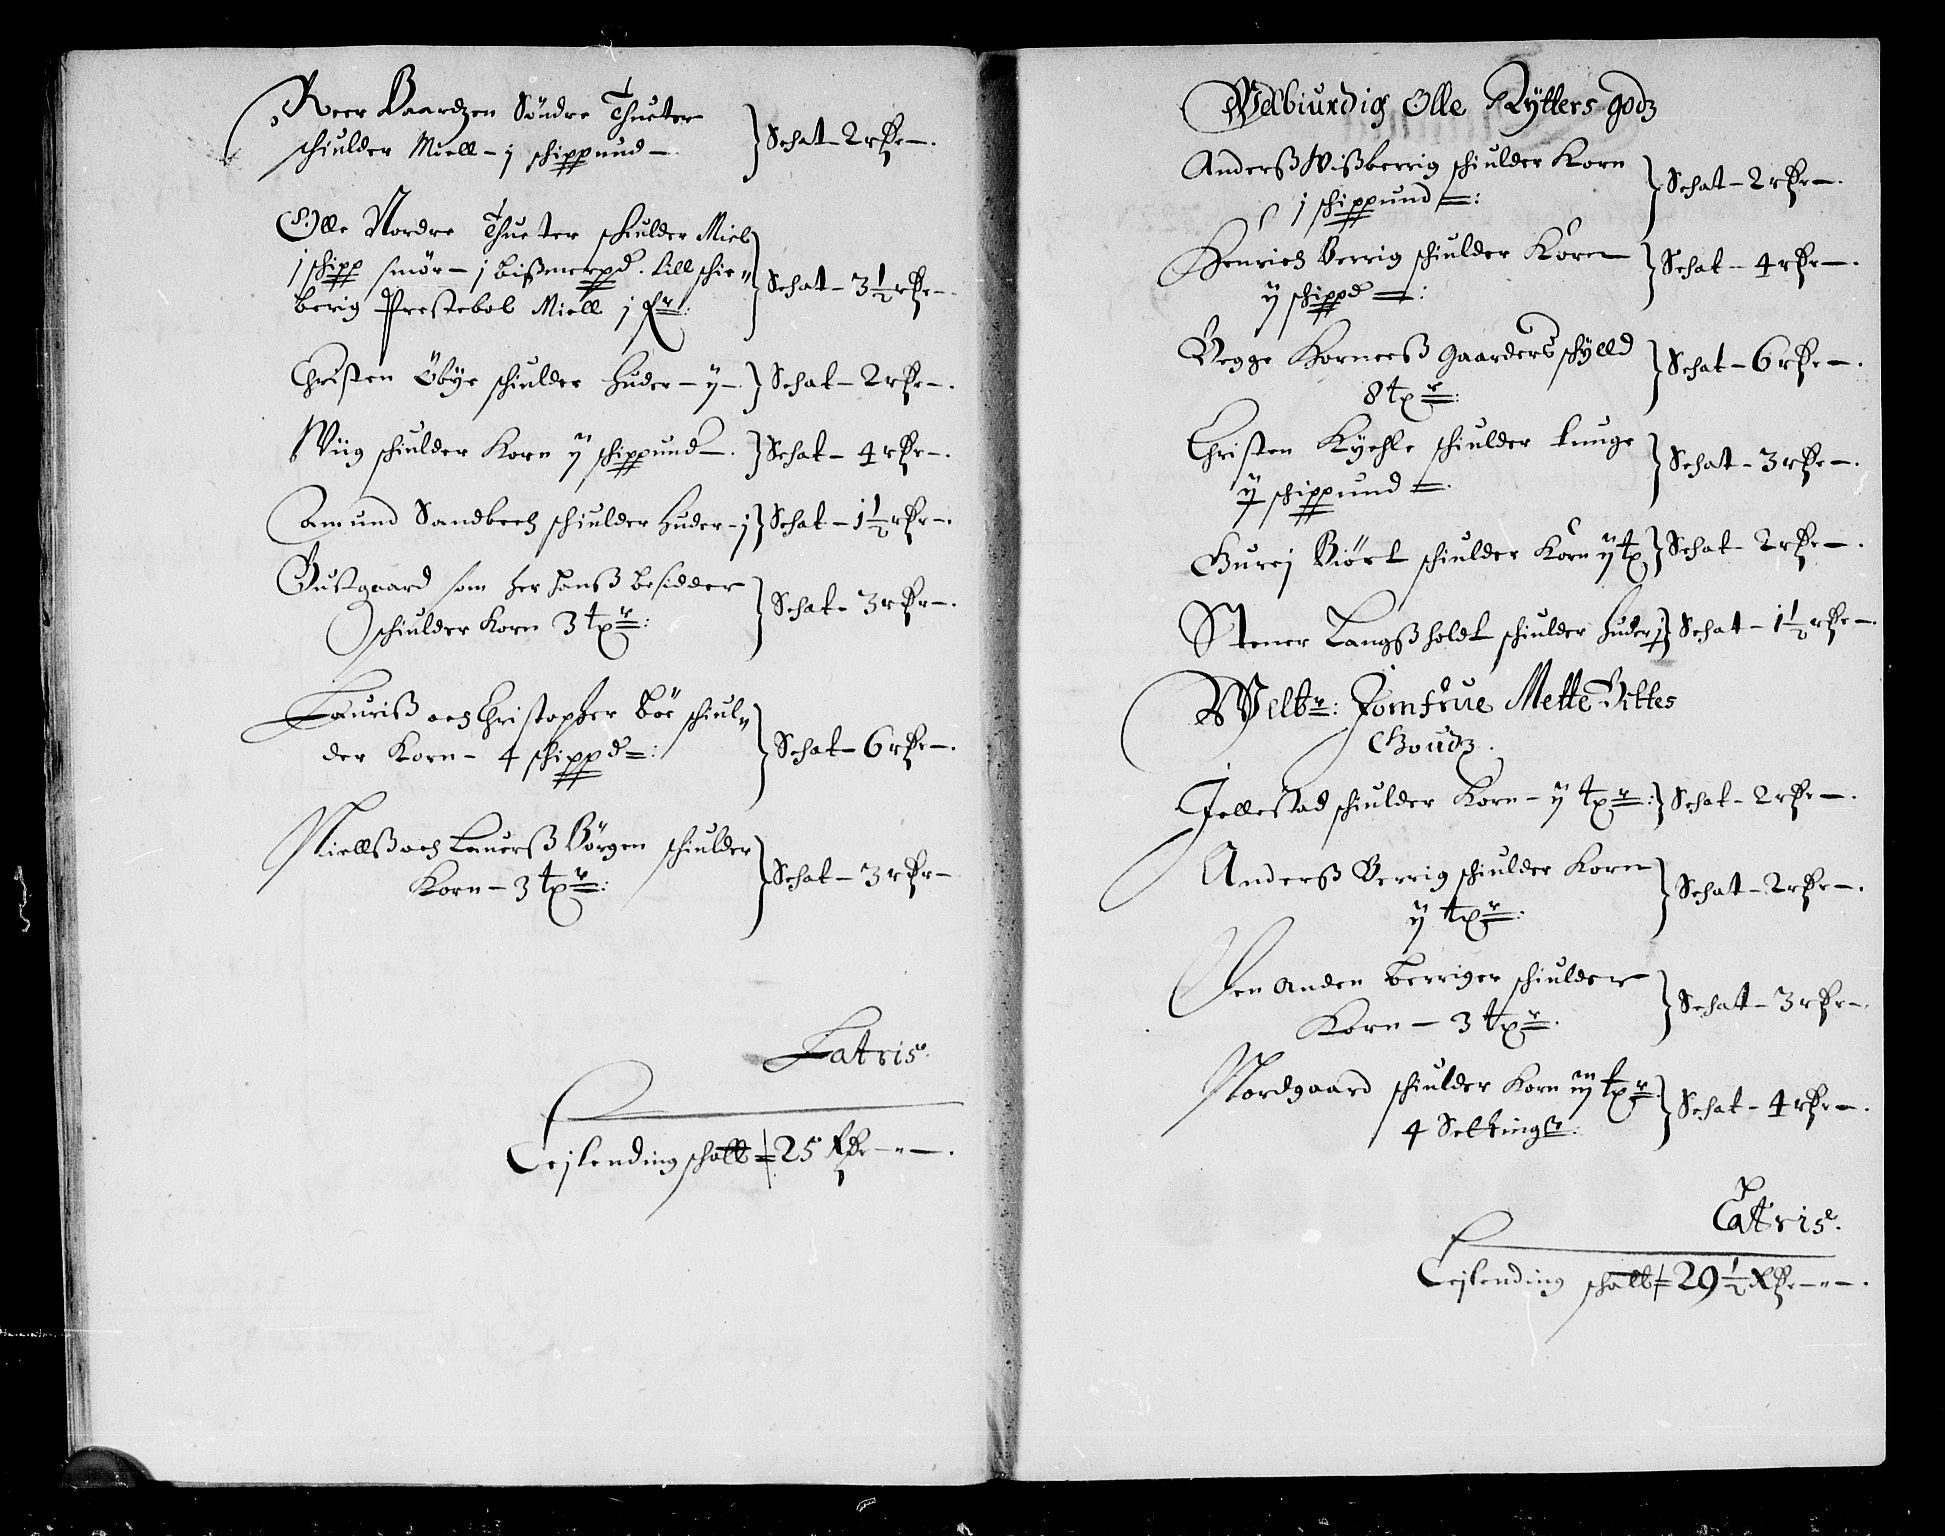 Roer Baardzen Söndre Thueter
schiulder Miell - j schippund -
Schat - 2 rdr -.
Olle Nordre Thueter schiulder Miel
j schipp smör - j bißmerpd. till schie=
berig Prestebol Miell j
Schat - 3½ rdr -.
Christen Öbÿe schiulder huder - ij -
Schat - 2 rdr -.
Wiig schiulder Korn ij schippund -.
Schat - 4 rdr -.
Amund Sandbech schiulder huder - j
Schat - 1½ rdr -.
Gustgaard som her Hanß besidder
schiulder Korn 3 tpr:
Schat - 3 rdr -.
Lauriß och Christopher Böe schiul=
der Korn - 4 schippd:
Schat - 6 rdr -.
Niellß och Lauerß Börgen schiulder
Korn - 3 tpr:
Schat - 3 rdr -
Latris.
Lejlending schatt = 25 Rdr - " -.
Welbiurdig Olle Rÿtters godz
Anderß Wißberrig schiulder Korn
j schippund:
Schat - 2 rdr -.
Henrich Berrig schiulder Korn
ij schippd:
Schat - 4 rdr -.
Begge Korneeß gaarders schÿlld
8 tpr:
Schat - 6 rdr -.
Christen Kÿehle schiulder tunge
ij schippund.
Schat - 3 rdr -.
Gurej Biört schiulder Korn ij tp
Schat - 2 rdr -.
Stener Langßholdt schiulder huder j
Schat - 1½ rdr -.
Welbr: Jomfrue Mette Bittes
Goudz.
Jellestad schiulder Korn - ij tpr:
Schat - 2 rdr -.
Anderß Berrig schiulder Korn
ij tpr:
Schat - 2 rdr -.
Den anden berriger schiulder
Korn - 3 tpr.
Schat - 3 rdr -.
Nordgaard schiulder Korn iij tpr
4 Settingr.
Schat - 4 rdr -.
Latris.
Lejlending schatt = 29½ Rdr - " -.